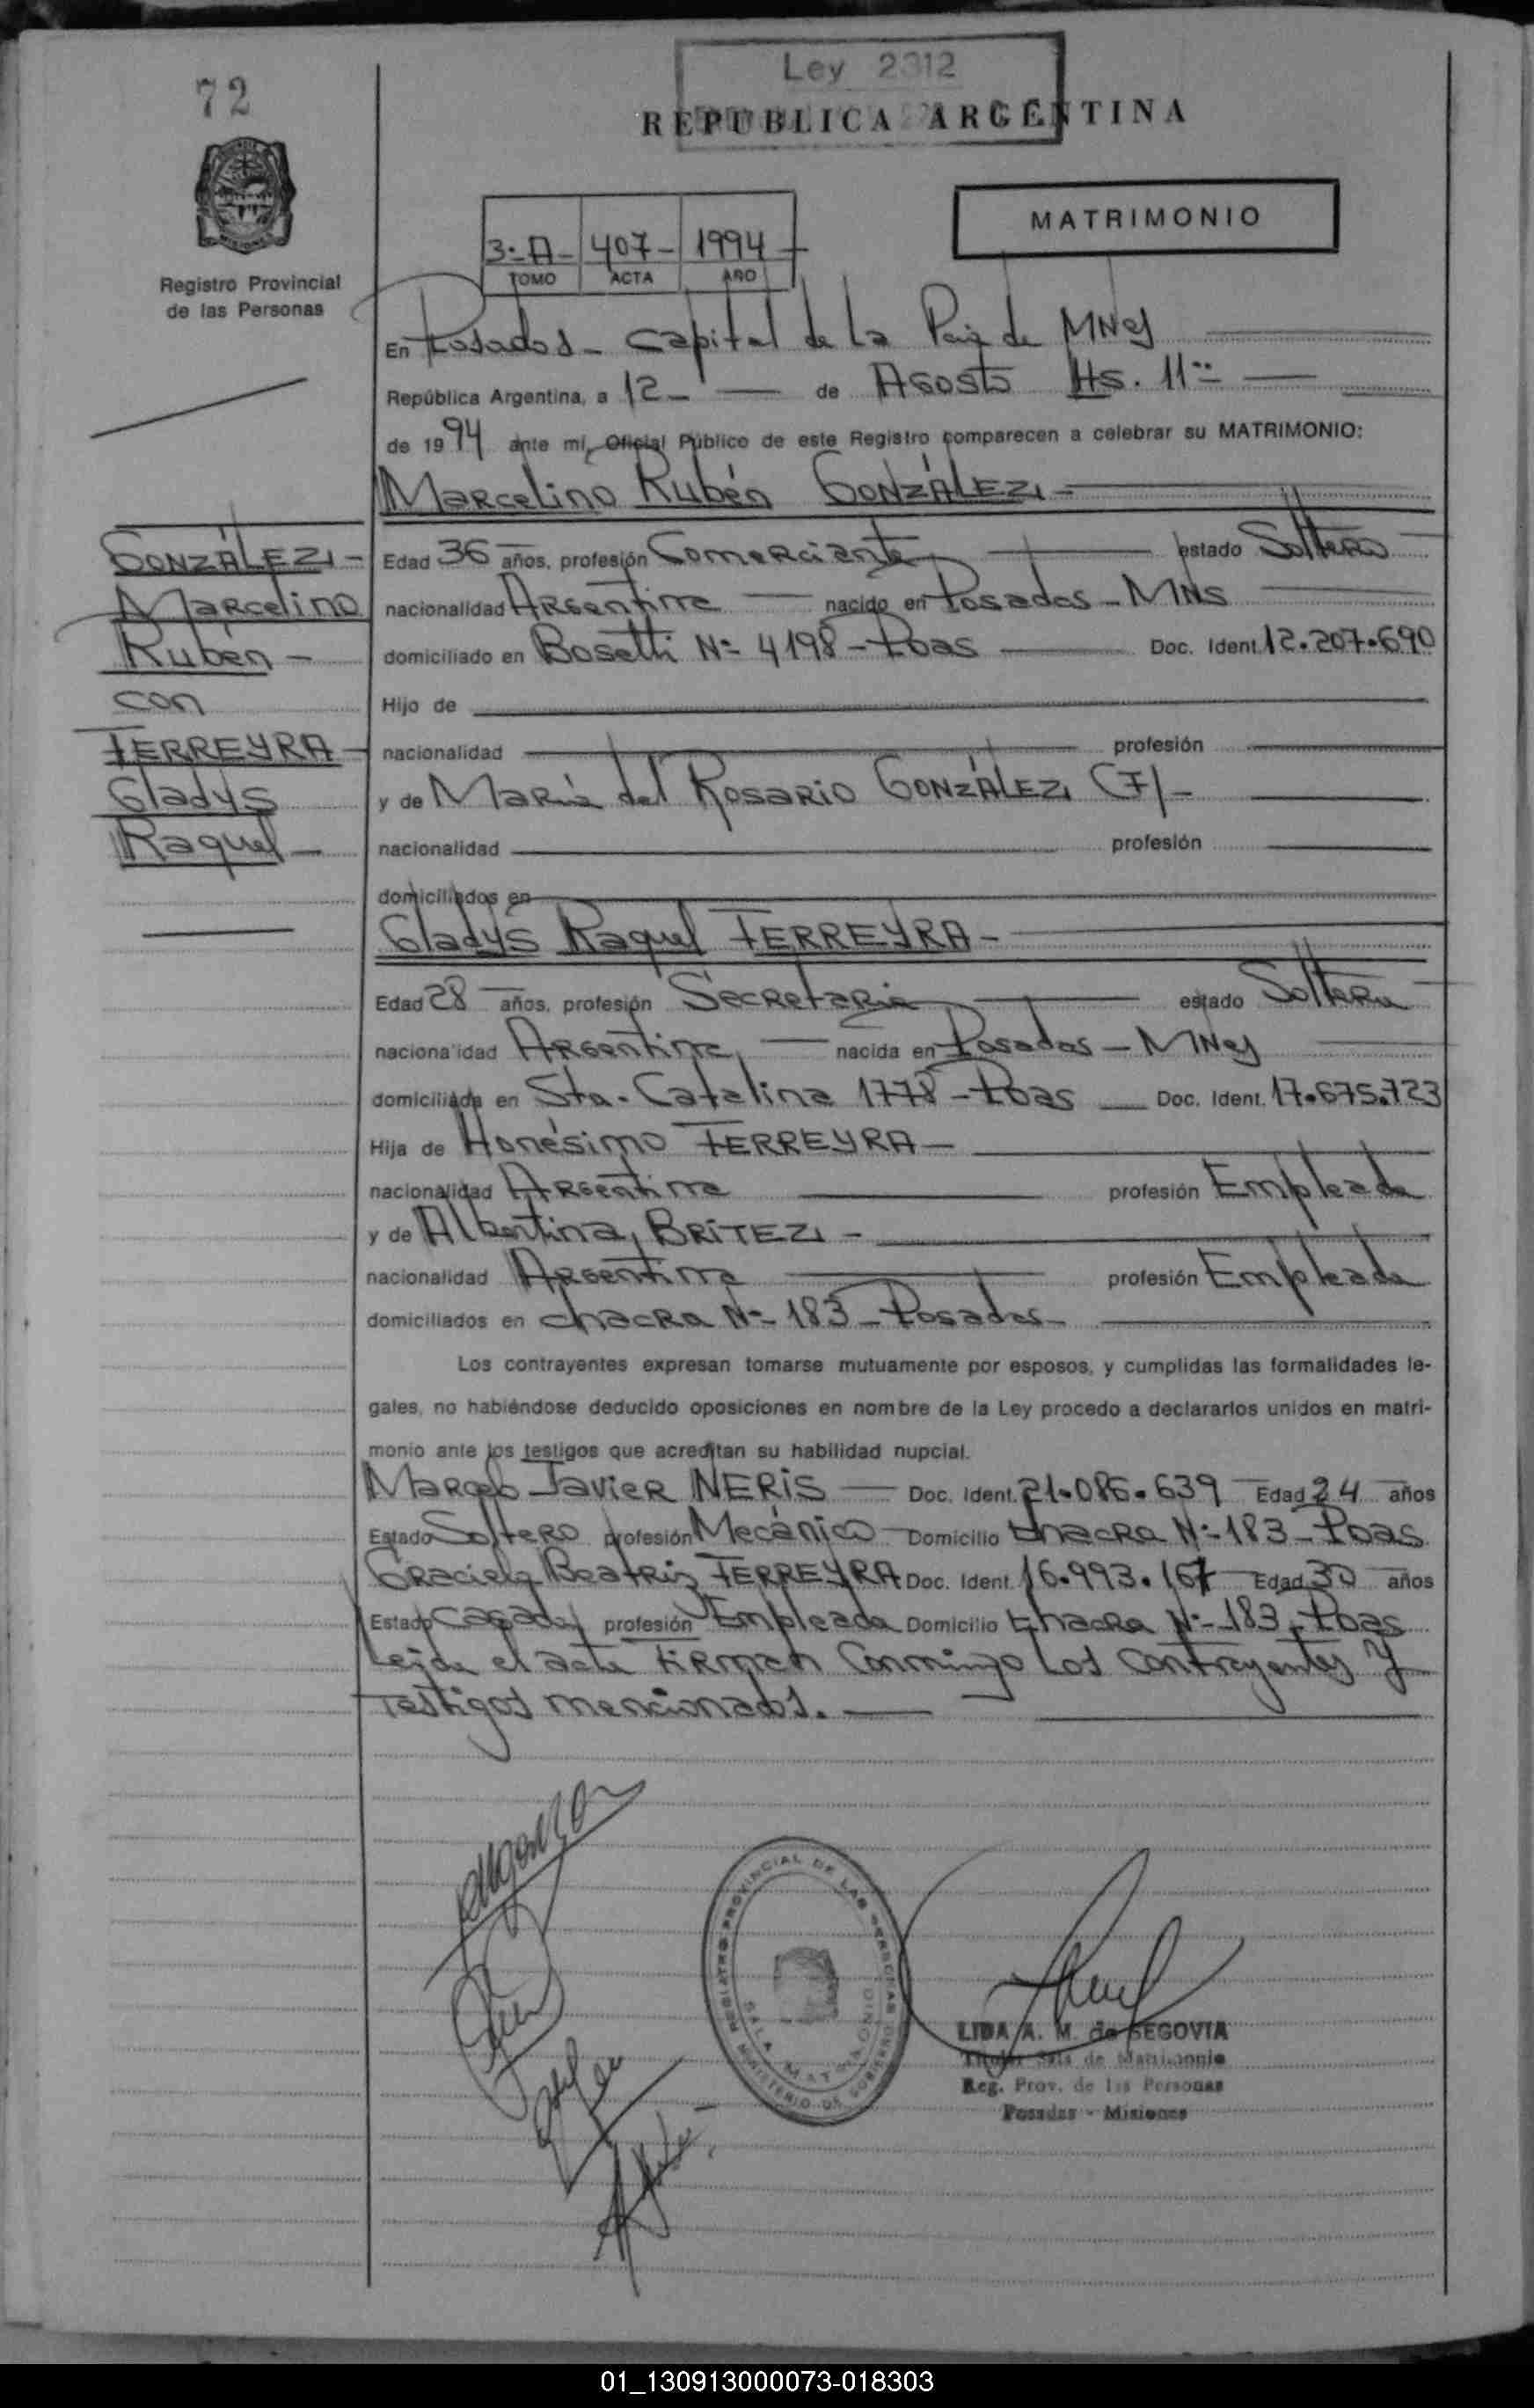 72
Ley 2312
REPUBLICA ARGENTINA
MATRIMONIO
3-A- 407- 1994
TOMO ACTA AÑO
Registro Provincial
de las Personas
En Posadas - Capital de la de MNes
República Argentina, a 12 de Agosto Hs. 11
de 1994 ante mi, Oficial Público de este Registro comparecen a celebrar su MATRIMONIO:
Marcelino Rubén GONZÁLEZ -
GONZÁLEZ -
Marcelino
Rubén -
con
FERREYRA -
Gladys
Raquel -
Edad 36 años, profesión Comerciante estado Soltero
nacionalidad Argentina nacido en Posadas - MNS
domiciliado en Bosetti Nº 4198 - Pdas Doc. Ident. 12.207.690
Hijo de
nacionalidad profesión
y de María del Rosario GONZÁLEZ (F) -
nacionalidad profesión
domiciliados en
Gladys Raquel FERREYRA -
Edad 28 años, profesión Secretaria estado Soltera
nacionalidad Argentina, nacida en Posadas - MNes
domiciliada en Sta. Catalina 1778 - Pdas Doc. Ident. 17.675.723
Hija de Honésimo FERREYRA -
nacionalidad Argentina profesión Empleado
y de Albertina BRITEZ -
nacionalidad Argentina profesión Empleada
domiciliados en chacra Nº 183 - Posadas -
Los contrayentes expresan tomarse mutuamente por esposos, y cumplidas las formalidades le-
gales, no habiéndose deducido oposiciones en nombre de la Ley procedo a declararlos unidos en matri-
monio ante los testigos que acreditan su habilidad nupcial.
Marcelo Javier NERIS Doc. Ident. 21.086.639 Edad 24 años
Estado Soltero profesión Mecánico Domicilio chacra Nº 183 - Pdas
Graciela Beatriz FERREYRA Doc. Ident. 16.993.167 Edad 30 años
Estado casada, profesión Empleada Domicilio chacra Nº 183 - Pdas
Leida el acta firman Conmigo Los Contrayentes y
Testigos mencionados.
REGISTRO PROVINCIAL DE LAS PERSONAS
SALA MATRIMONIO
MINISTERIO DE GOBIERNO
LIDA A. M. de SEGOVIA
Titular Sala de Matrimonio
Reg. Prov. de las Personas
Posadas - Misiones
01_130913000073-018303